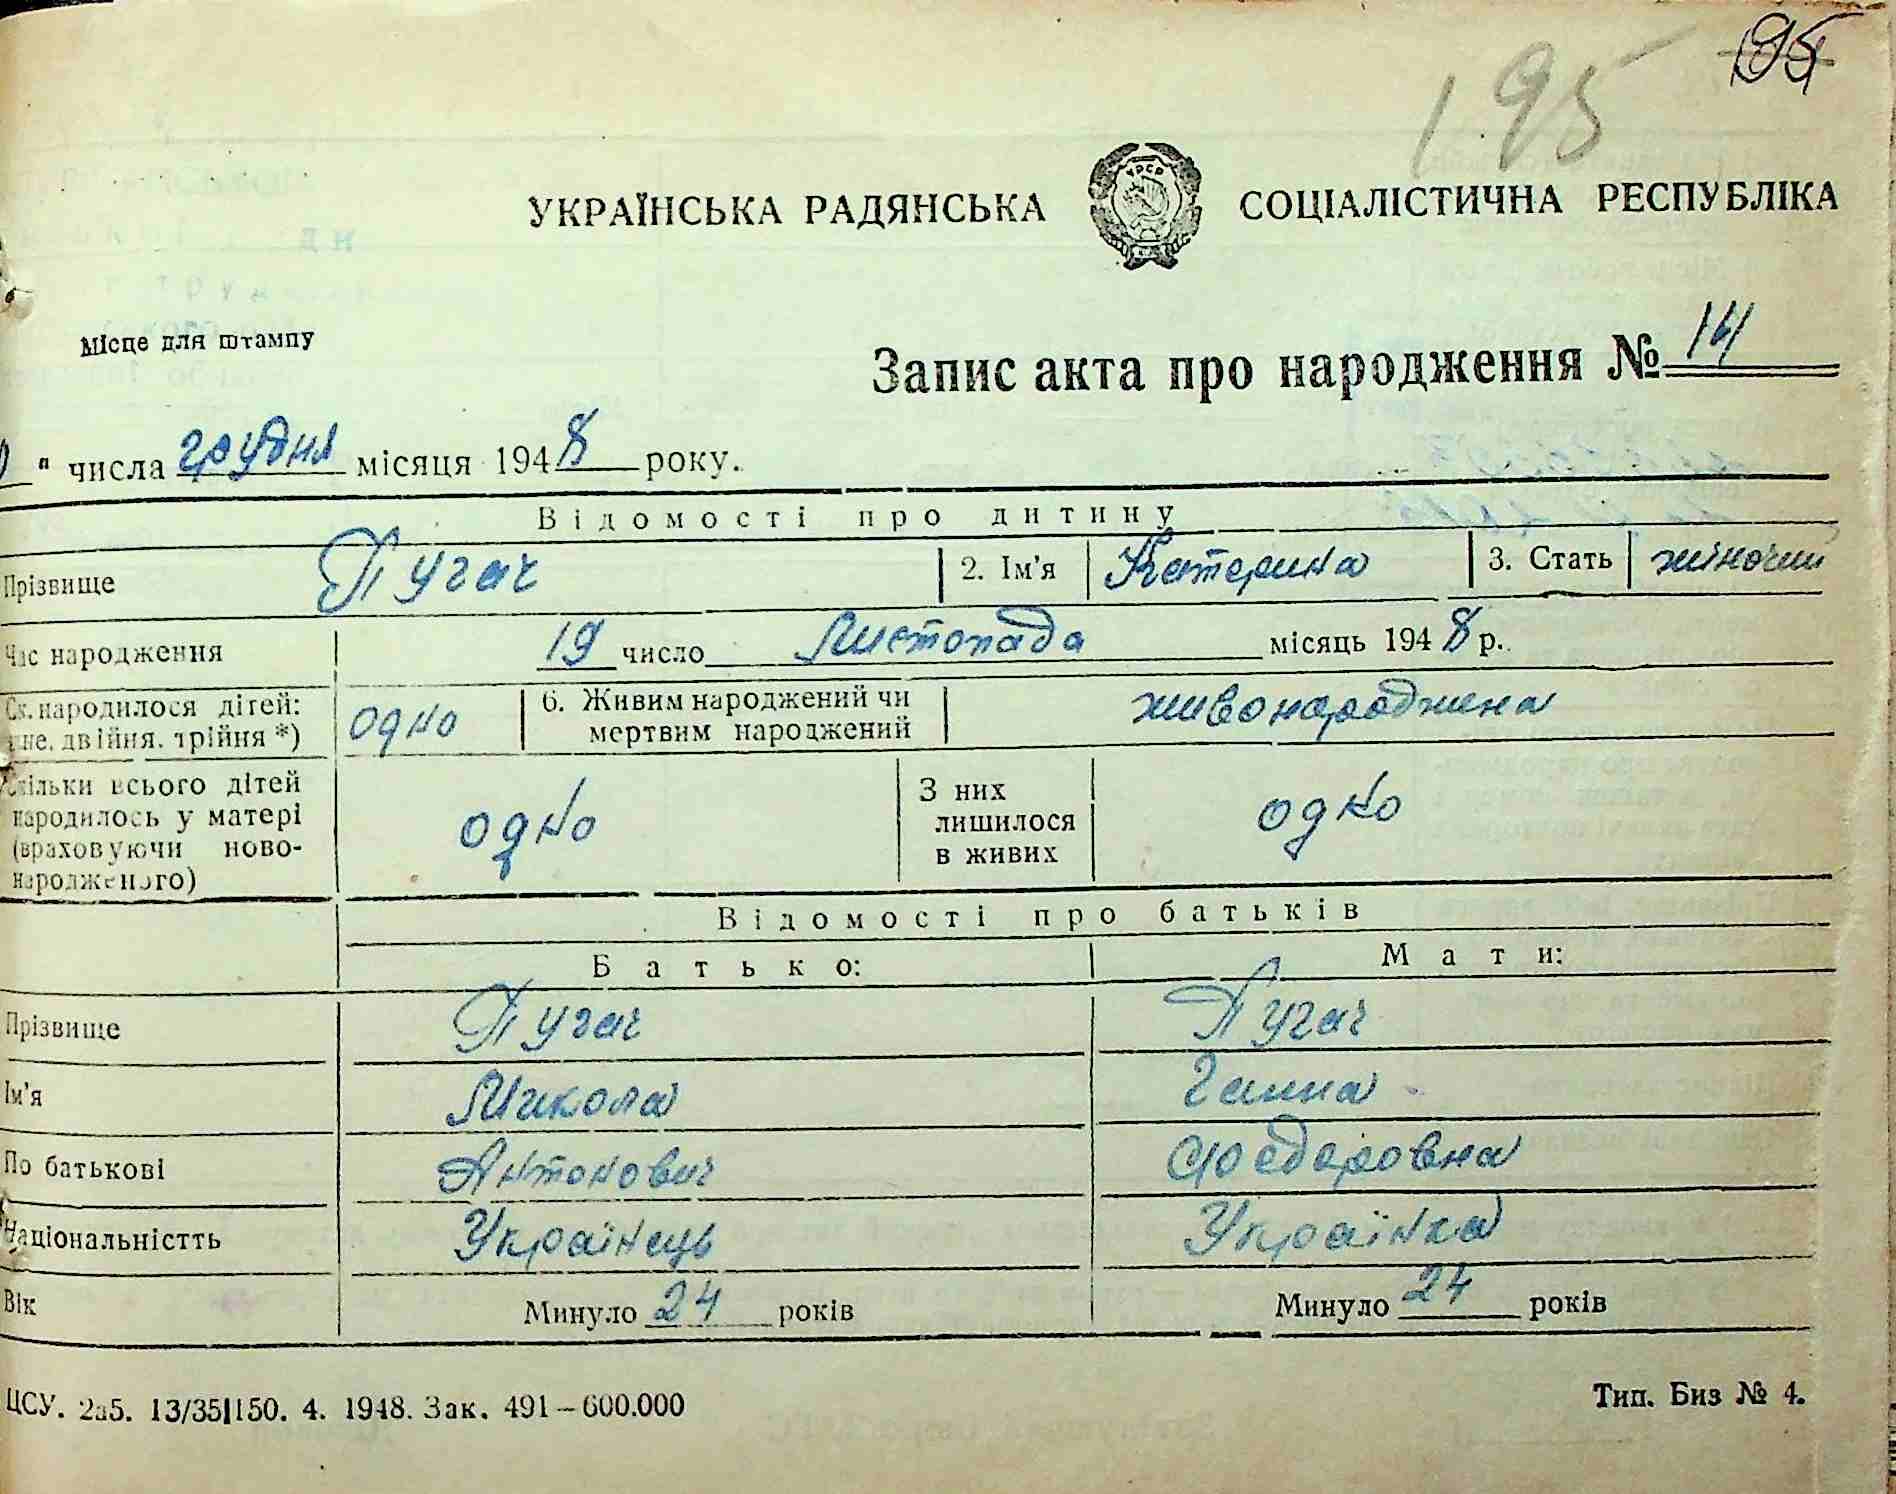 195
195
УКРАЇНСЬКА РАДЯНСЬКА СОЦІАЛІСТИЧНА РЕСПУБЛІКА
УРСР
Місце для штампу
Запис акта про народження № 14
" числа грудня місяця 1948 року.
Відомості про дитину
Прізвище Пугач 2. Ім'я Катерина 3. Стать жіночий
Час народження 19 число Листопада місяць 1948 р.
Ск. народилося дітей: одно 6. Живим народжений чи живонароджена
двійня, трійня *) мертвим народжений
Скільки всього дітей З них
народилось у матері одно лишилося одно
(враховуючи ново- в живих
народженого)
Відомості про батьків
Батько: Мати:
Прізвище Пугач Пугач
Ім'я Микола Ганна
По батькові Антонович Федоровна
Національністть Українець Українка
Вік Минуло 24 років Минуло 24 років
ЦСУ. 2а5. 13/35|150. 4. 1948. Зак. 491–600.000 Тип. Биз № 4.